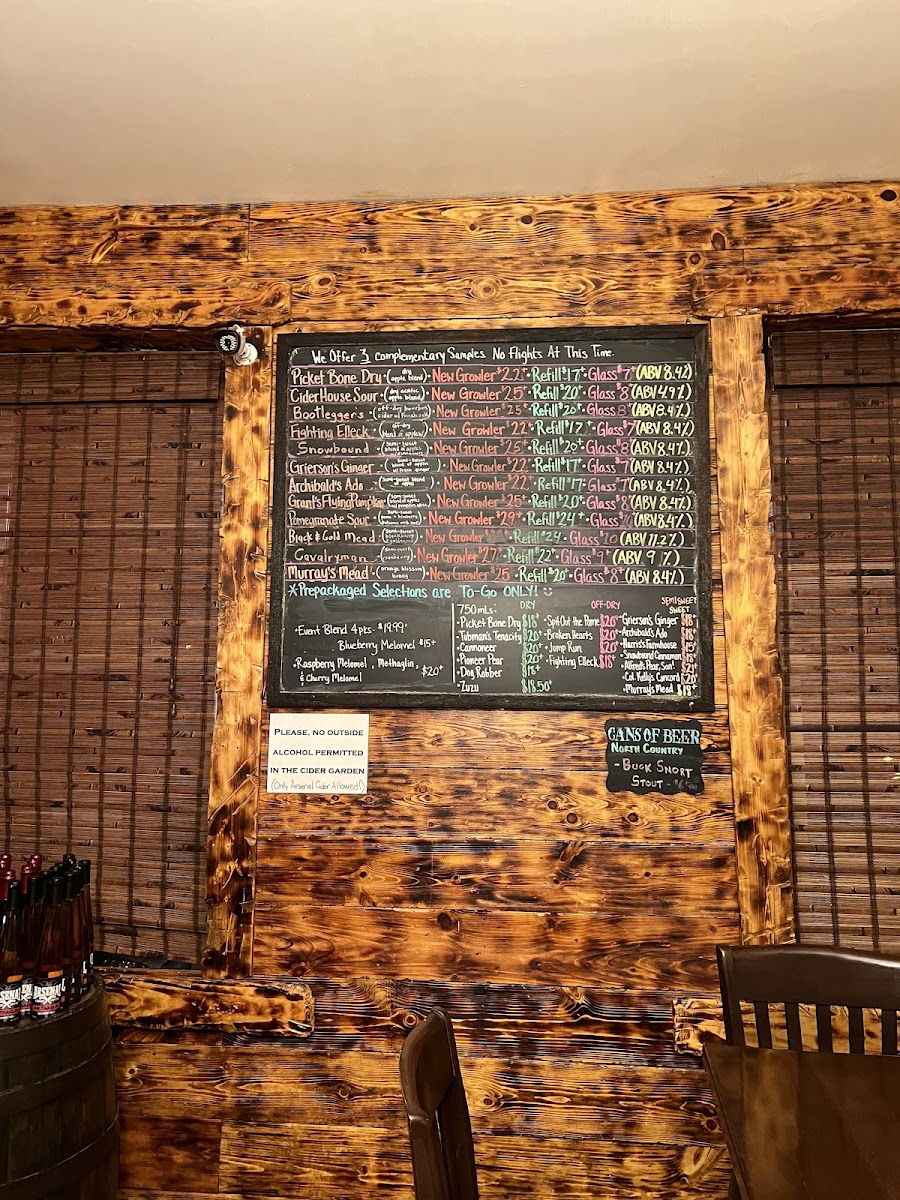 We Offer 3 complementary Samples. No Flights At This Time.
Picket Bone Dry • (dry apple blend) • New Growler $22+ • Refill $17+ • Glass $7+ (ABV 8.4%)
Cider House Sour • (dry acetic apple blend) • New Growler $25+ • Refill $20+ • Glass $8 (ABV 4.9%)
Bootlegger's • (off-dry bourbon • New Growler $25+ • Refill $20+ • Glass 8 (ABV 8.4%)
Fighting Elleck • (off-dry blend of apples) • New Growler $22+ • Refill $17+ • Glass $7 (ABV 8.4%)
Snowbound • (semi-sweet blend of apples • New Growler $25+ • Refill $20+ • Glass $8 (ABV 8.4%)
Grierson's Ginger • (semi-sweet blend of apples w/ fresh ginger) • New Growler $22+ • Refill $17+ • Glass $7 (ABV 8.4%)
Archibald's Ado • (semi-sweet blend of apples) • New Growler $22+ • Refill $17+ • Glass $7 (ABV 8.4%)
Grant's Flying Pumpkin • (semi-sweet blend of apples • New Growler $25+ • Refill $20+ • Glass $8 (ABV 8.4%)
Pomegranate Sour • New Growler $29+ • Refill $24+ • Glass (ABV 8.4%)
Black & Gold Mead • New Growler • Refill $24 • Glass $10 (ABV 11.2%)
Cavalryman • New Growler $27+ • Refill $22+ • Glass $9+ (ABV 9%)
Murray's Mead • (orange blossom honey) • New Growler $25 • Refill $20+ • Glass $8+ (ABV 8.4%)
*Prepackaged Selections are To-Go ONLY! :)
• Event Blend 4pks - $19.99
Blueberry Melomel $15+
• Raspberry Melomel, Methaglin,
& Cherry Melomel $20+
750 mLs: DRY
• Picket Bone Dry $18+
• Tubman's Tenacity $20+
• Cannoneer $20+
• Pioneer Pear $20+
• Dog Robber $18+
• Zuzu $18.50+
OFF-DRY
• Spit Out the Pome $20+
• Broken Hearts $20+
• Jump Run $20+
• Fighting Elleck $18+
SEMI SWEET
SWEET
• Grierson's Ginger $18+
• Archibald's Ado $18+
• Harris's Farmhouse
• Snowbound Cinnamon
• Alfred's Pear, Son! $21+
• Col. Kelly's Concord $20+
• Murray's Mead $18+
PLEASE, NO OUTSIDE
ALCOHOL PERMITTED
IN THE CIDER GARDEN
(Only Arsenal Cider Allowed!)
CANS OF BEER
NORTH COUNTRY
- BUCK SNORT
STOUT -
ARSENAL